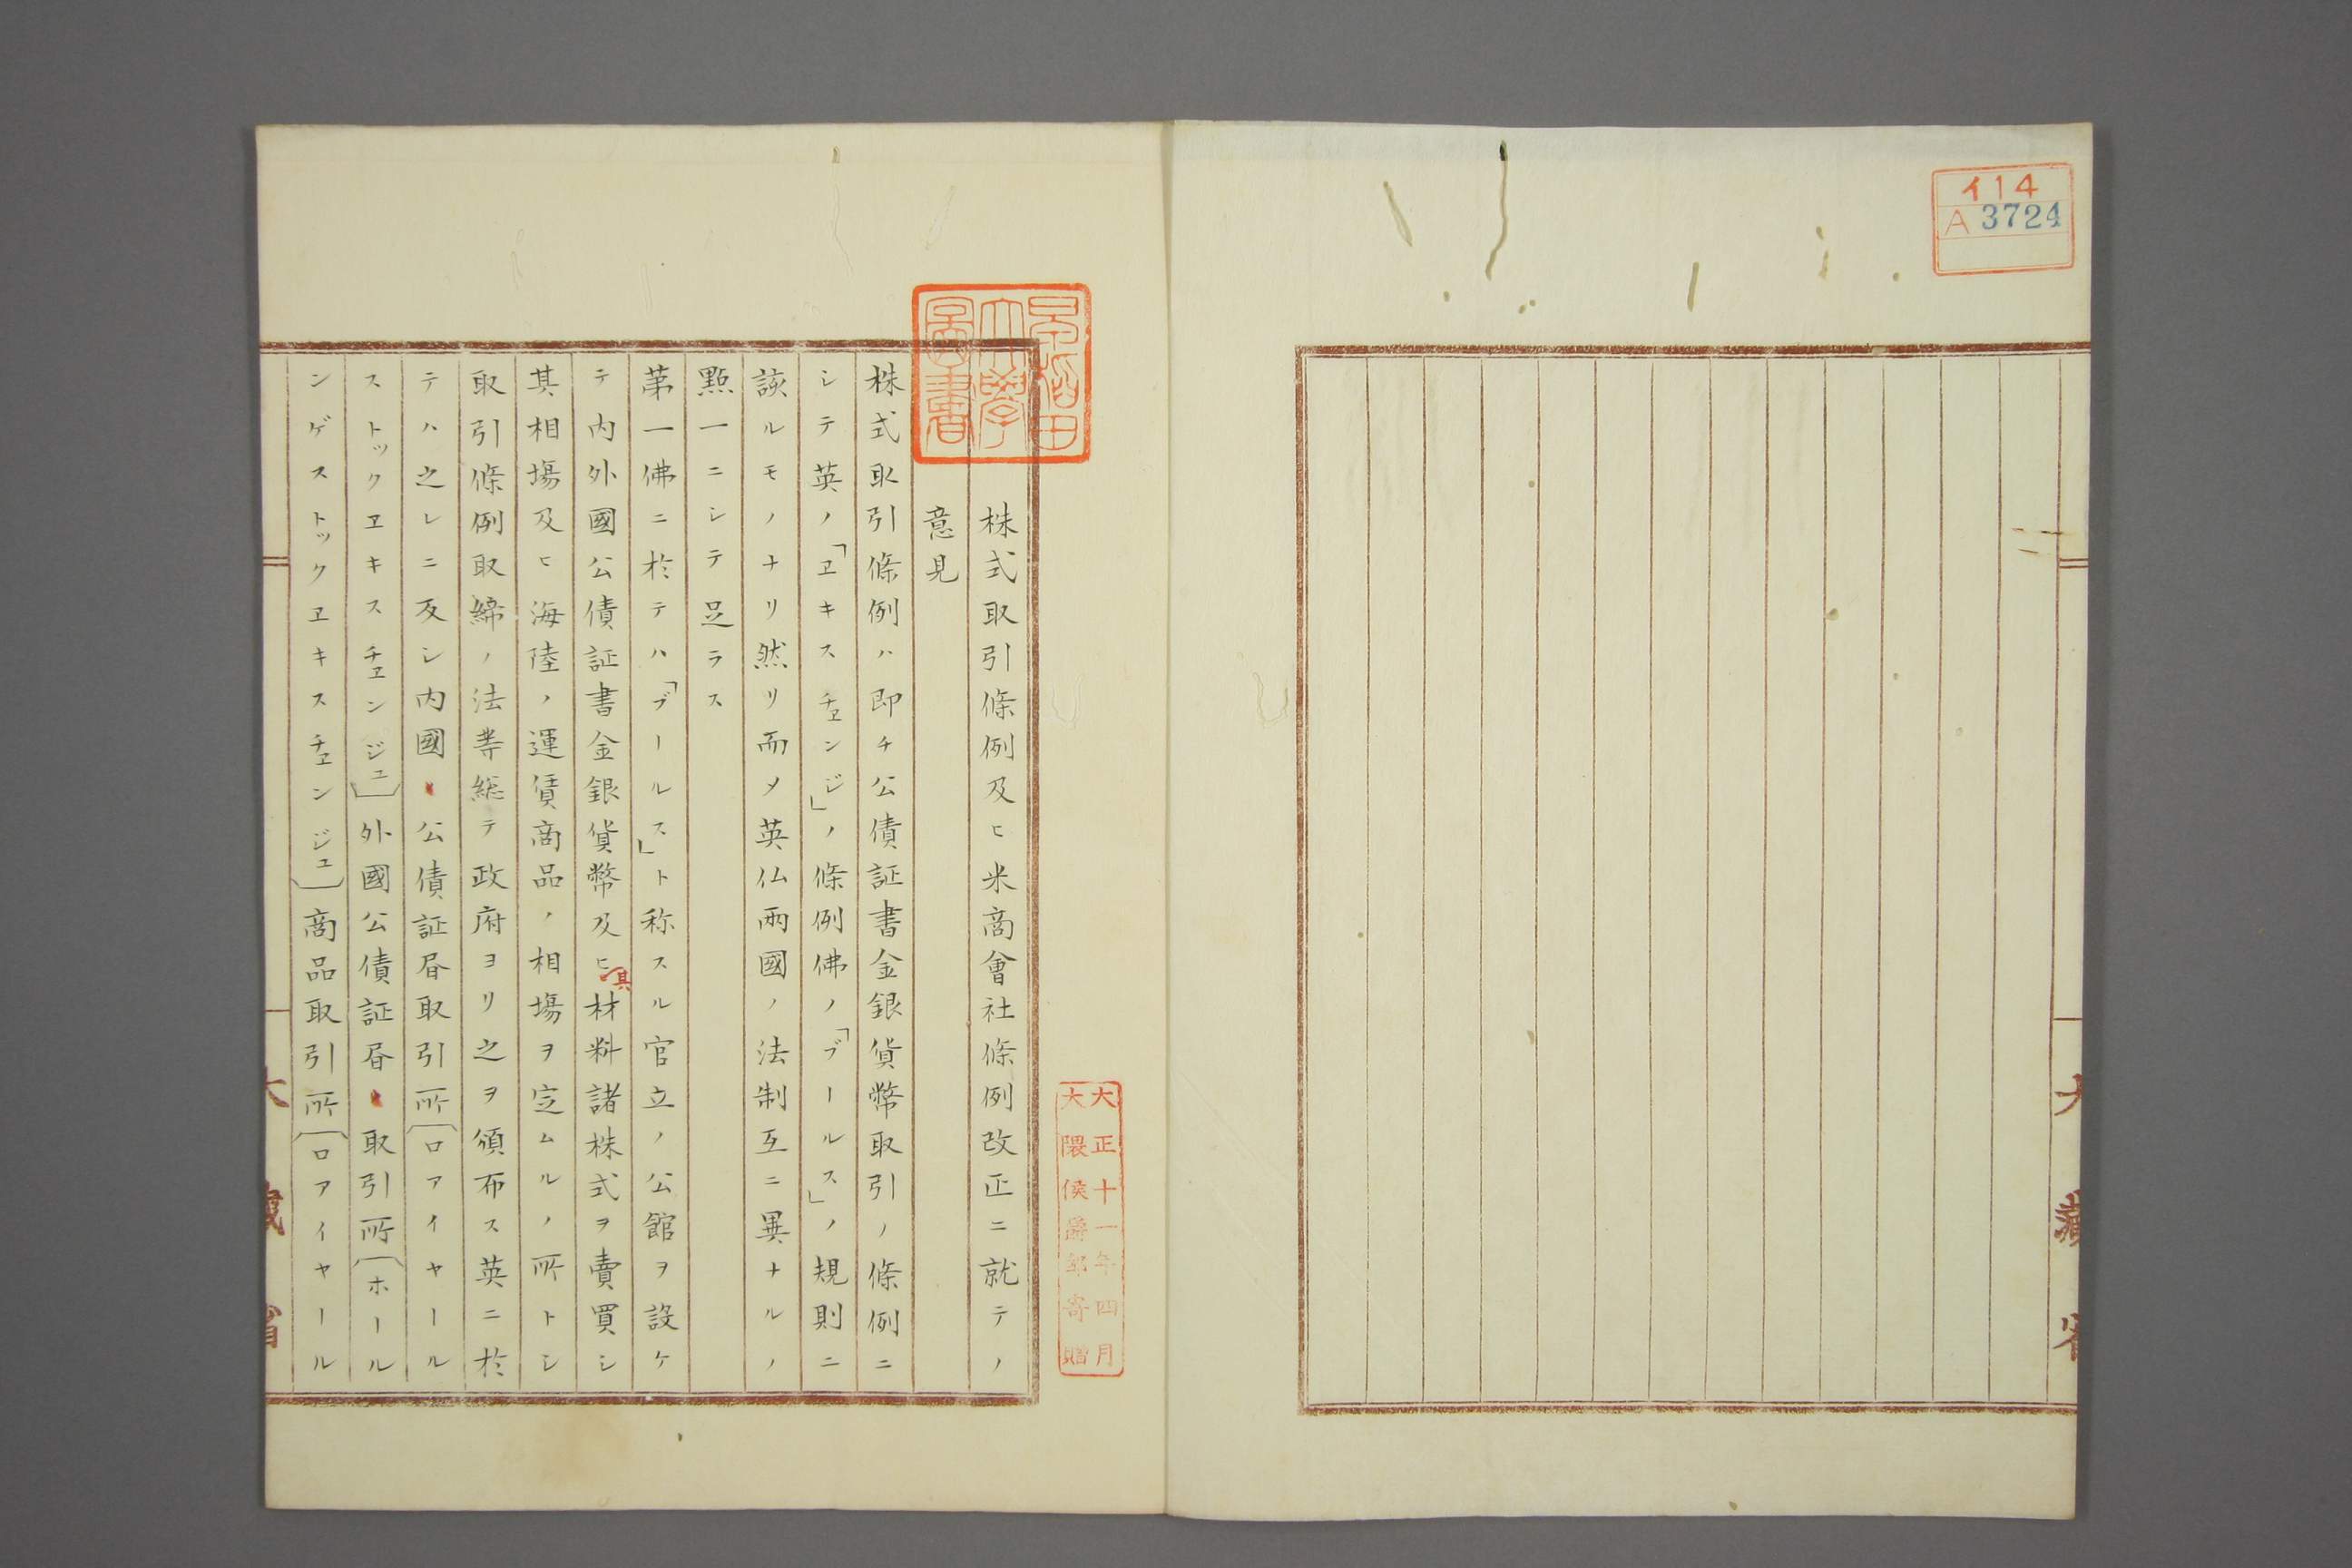 イ14
A 3724
大藏省
早稲田
大學
圖書
大正十一年四月
大隈侯爵邸寄贈
株式取引條例及ヒ米商會社條例改正ニ就テノ
意見
株式取引條例ハ即チ公債証書金銀貨幣取引ノ條例ニ
シテ英ノ「ヱキスチヱンジ」ノ條例佛ノ「ブールス」ノ規則ニ
該ルモノナリ然リ而メ英仏兩國ノ法制互ニ異ナルノ
點一ニシテ足ラス
第一佛ニ於テハ「ブールス」ト称スル官立ノ公館ヲ設ケ
テ内外國公債証書金銀貨幣及ヒ其材料諸株式ヲ賣買シ
其相場及ヒ海陸ノ運賃商品ノ相場ヲ定ムルノ所トシ
取引條例取締ノ法等総テ政府ヨリ之ヲ頒布ス英ニ於
テハ之レニ反シ内國公債証昬取引所(ロアイヤール
ストックヱキスチヱンジユ)外國公債証昬取引所(ホール
ンゲストックヱキスチヱンジユ)商品取引所(ロアイヤール
大藏省